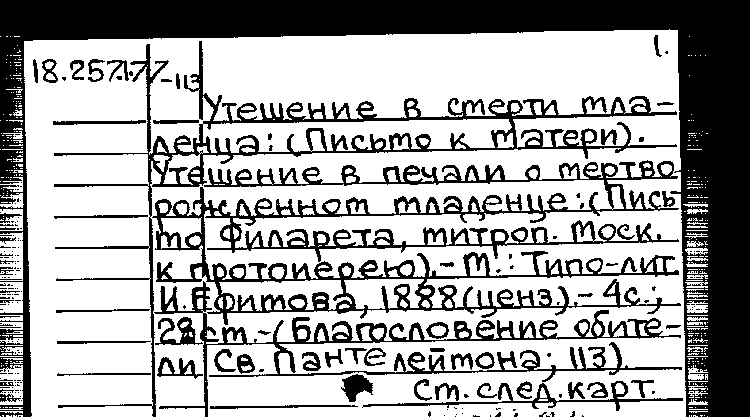 1.
18.257.1.77-113
Утешение в смерти мла-
денца: (Письмо к матери).
Утешение в печали о мертво
рожденном младенце: (Пись
мо Филарета, митроп. Моск.
к протоиерею).- М.: Типо-лит.
И.Ефимова, 1888(ценз.).- 4с.;
28см.-(Благословение обите-
ли Св. Пантелеймона; 113).
См. след. карт.